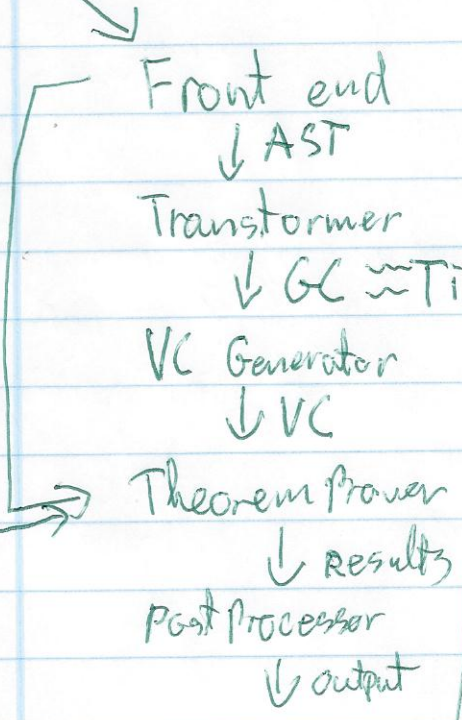 Front end
↓ AST
Transformer
↓ GC ≈ Ti
VC Generator
↓ VC
Theorem Prover
↓ Results
Post Processor
↓ output